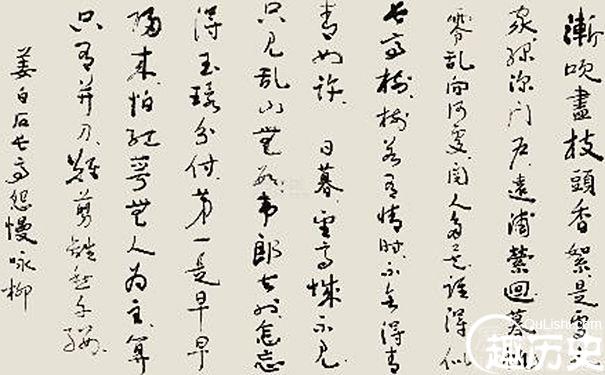 漸吹盡枝頭香絮是處人
家綠深门户遠浦縈迴暮帆
零乱向何處閱人多矣誰得似
长亭樹樹若有情时不会得青
青如許 日暮望高城不見
只見乱山無數韦郎去也怎忘
得玉環分付第一是早早
歸来怕紅萼無人为主算
只有并刀難剪離愁千縷
姜白石长亭怨慢咏柳
QuLishi.com
趣历史